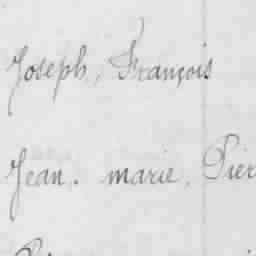 Joseph, François
Jean. marie. Pier